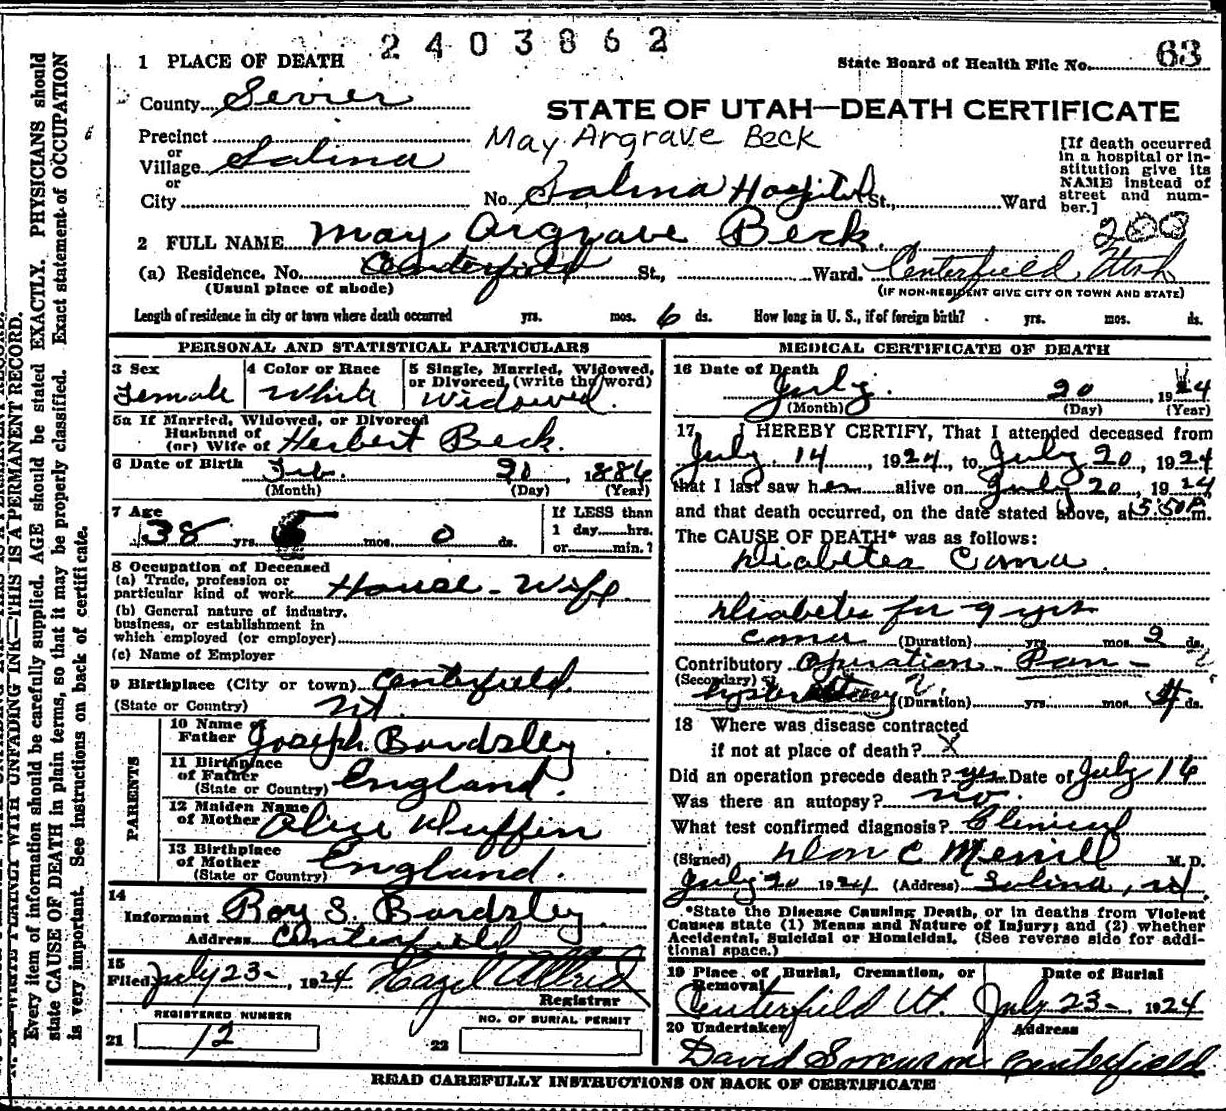 2403862
1 PLACE OF DEATH
State Board of Health File No. 63
County Sevier
STATE OF UTAH—DEATH CERTIFICATE
Precinct
May Argrave Beck
or
Village Salina
or
City
No. Salina Hospital St., Ward
[If death occurred
in a hospital or in-
stitution give its
NAME instead of
street and num-
ber.]
2 FULL NAME May Argrave Beck.
(a) Residence. No. Centerfield St., Ward. Centerfield Utah
(Usual place of abode)
(IF NON-RESIDENT GIVE CITY OR TOWN AND STATE)
Length of residence in city or town where death occurred yrs. mos. 6 ds. How long in U. S., if of foreign birth? yrs. mos. ds.
PERSONAL AND STATISTICAL PARTICULARS
3 Sex
Female
4 Color or Race
White
5 Single, Married, Widowed,
or Divorced (write the word)
Widowed.
5a If Married, Widowed, or Divorced
Husband of
(or) Wife of Herbert Beck.
6 Date of Birth Feb. 20, 1886
(Month) (Day) (Year)
7 Age
38 yrs. mos. 0 ds.
If LESS than
1 day hrs.
or min.?
8 Occupation of Deceased
(a) Trade, profession or
particular kind of work House-Wife.
(b) General nature of industry,
business, or establishment in
which employed (or employer)
(c) Name of Employer
9 Birthplace (City or town) Centerfield.
(State or Country) Ut.
PARENTS
10 Name of
Father Joseph Bardsley.
11 Birthplace
of Father
(State or Country) England.
12 Maiden Name
of Mother Alice Duffin
13 Birthplace
of Mother
(State or Country) England.
14
Informant Roy S. Bardsley.
Address Centerfield
15
Filed July 23-, 1924 Hazel Allred
Registrar
REGISTERED NUMBER
21 12
NO. OF BURIAL PERMIT
22
MEDICAL CERTIFICATE OF DEATH
16 Date of Death
July. 20 1924
(Month) (Day) (Year)
17 I HEREBY CERTIFY, That I attended deceased from
July 14, 1924, to July 20, 1924
that I last saw her alive on July 20, 1924,
and that death occurred, on the date stated above, at 5:50 P. m.
The CAUSE OF DEATH* was as follows:
Diabetes Coma.
Diabetes for 9 yrs
coma (Duration) yrs. mos. 2 ds.
Contributory Operation - Pan-
(Secondary)
(Duration) yrs. mos. 4 ds.
18 Where was disease contracted
if not at place of death? X
Did an operation precede death? yes Date of July 16
Was there an autopsy? no.
What test confirmed diagnosis? Clinical
(Signed) Don C Merrill M.D.
July 20 1924 (Address) Salina, Ut
*State the Disease Causing Death, or in deaths from Violent
Causes state (1) Means and Nature of Injury; and (2) whether
Accidental, Suicidal or Homicidal. (See reverse side for addi-
tional space.)
19 Place of Burial, Cremation, or
Removal
Centerfield Ut.
Date of Burial
July 23-, 1924
20 Undertaker
David Sorenson
Address
Centerfield
READ CAREFULLY INSTRUCTIONS ON BACK OF CERTIFICATE
N. B.—WRITE PLAINLY WITH UNFADING INK—THIS IS A PERMANENT RECORD.
Every item of information should be carefully supplied. AGE should be stated EXACTLY. PHYSICIANS should
state CAUSE OF DEATH in plain terms, so that it may be properly classified. Exact statement of OCCUPATION
is very important. See instructions on back of certificate.